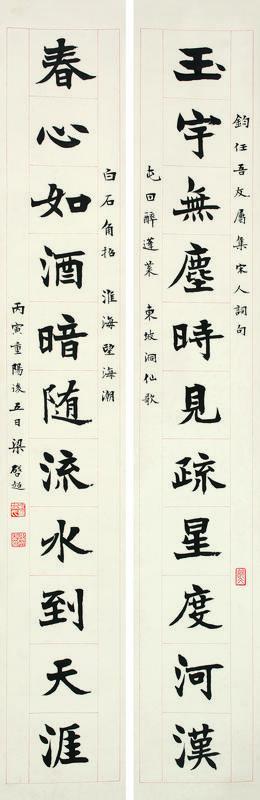 鈞任吾友屬集宋人詞句
玉宇無塵時見疏星度河漢
屯田醉蓬萊 東坡洞仙歌
白石角招 淮海望海潮
春心如酒暗随流水到天涯
丙寅重陽後五日 梁啓超